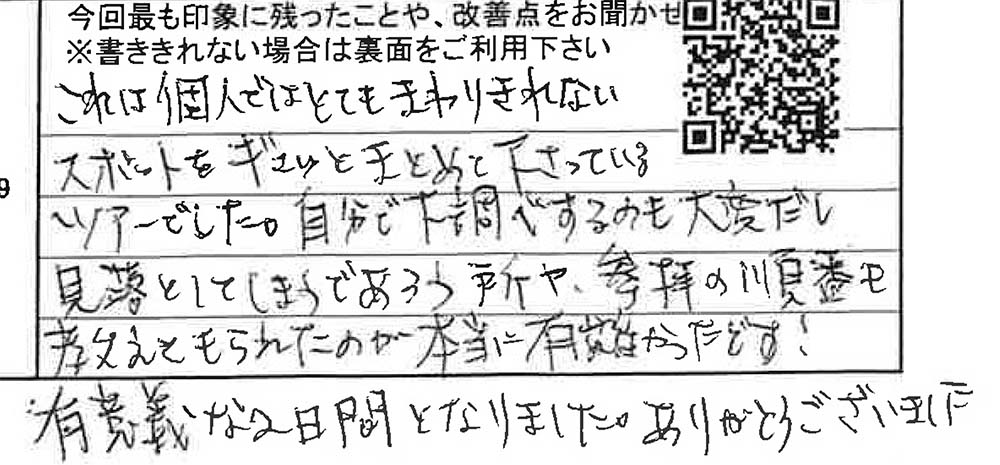 今回最も印象に残ったことや、改善点をお聞かせ
※書ききれない場合は裏面をご利用下さい
これは個人ではとてもまわりきれない
スポットをギュッとまとめて下さっている
9
ツアーでした。自分で下調べするのも大変だし
見落としてしまうであろう所や、参拝の順番も
教えてもらえたのが本当に有難かったです!
有意義な2日間となりました。ありがとうございました